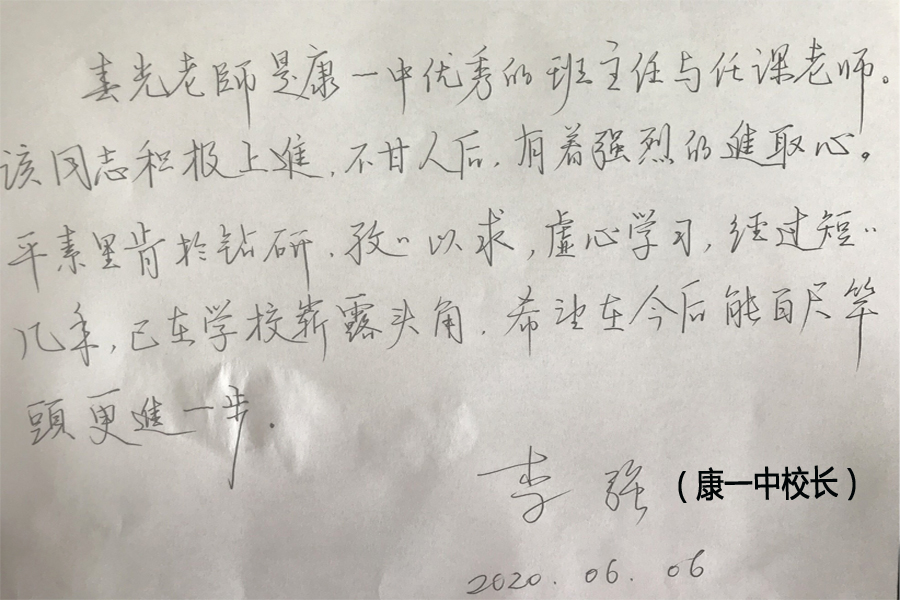 春光老師是康一中优秀的班主任与任课老师。
该同志积极上進,不甘人后,有着强烈的進取心。
平素里肯於钻研,孜〃以求,虚心学习,经过短〃
几年,已在学校崭露头角,希望在今后能百尺竿
頭更進一步.
李强(康一中校长)
2020.06.06